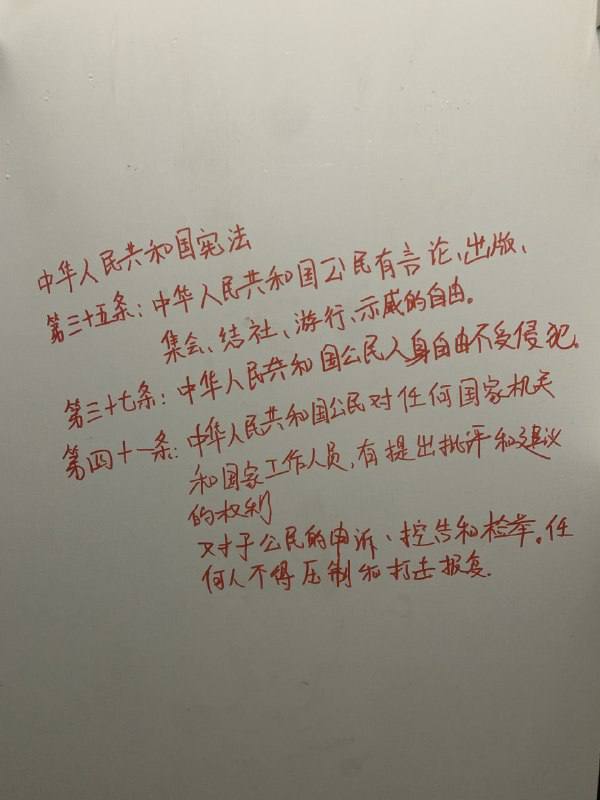 中华人民共和国宪法
第三十五条：中华人民共和国公民有言论、出版、
集会、结社、游行、示威的自由。
第三十七条：中华人民共和国公民人身自由不受侵犯。
第四十一条：中华人民共和国公民对任何国家机关
和国家工作人员，有提出批评和建议
的权利
对于公民的申诉、控告和检举。任
何人不得压制和打击报复.